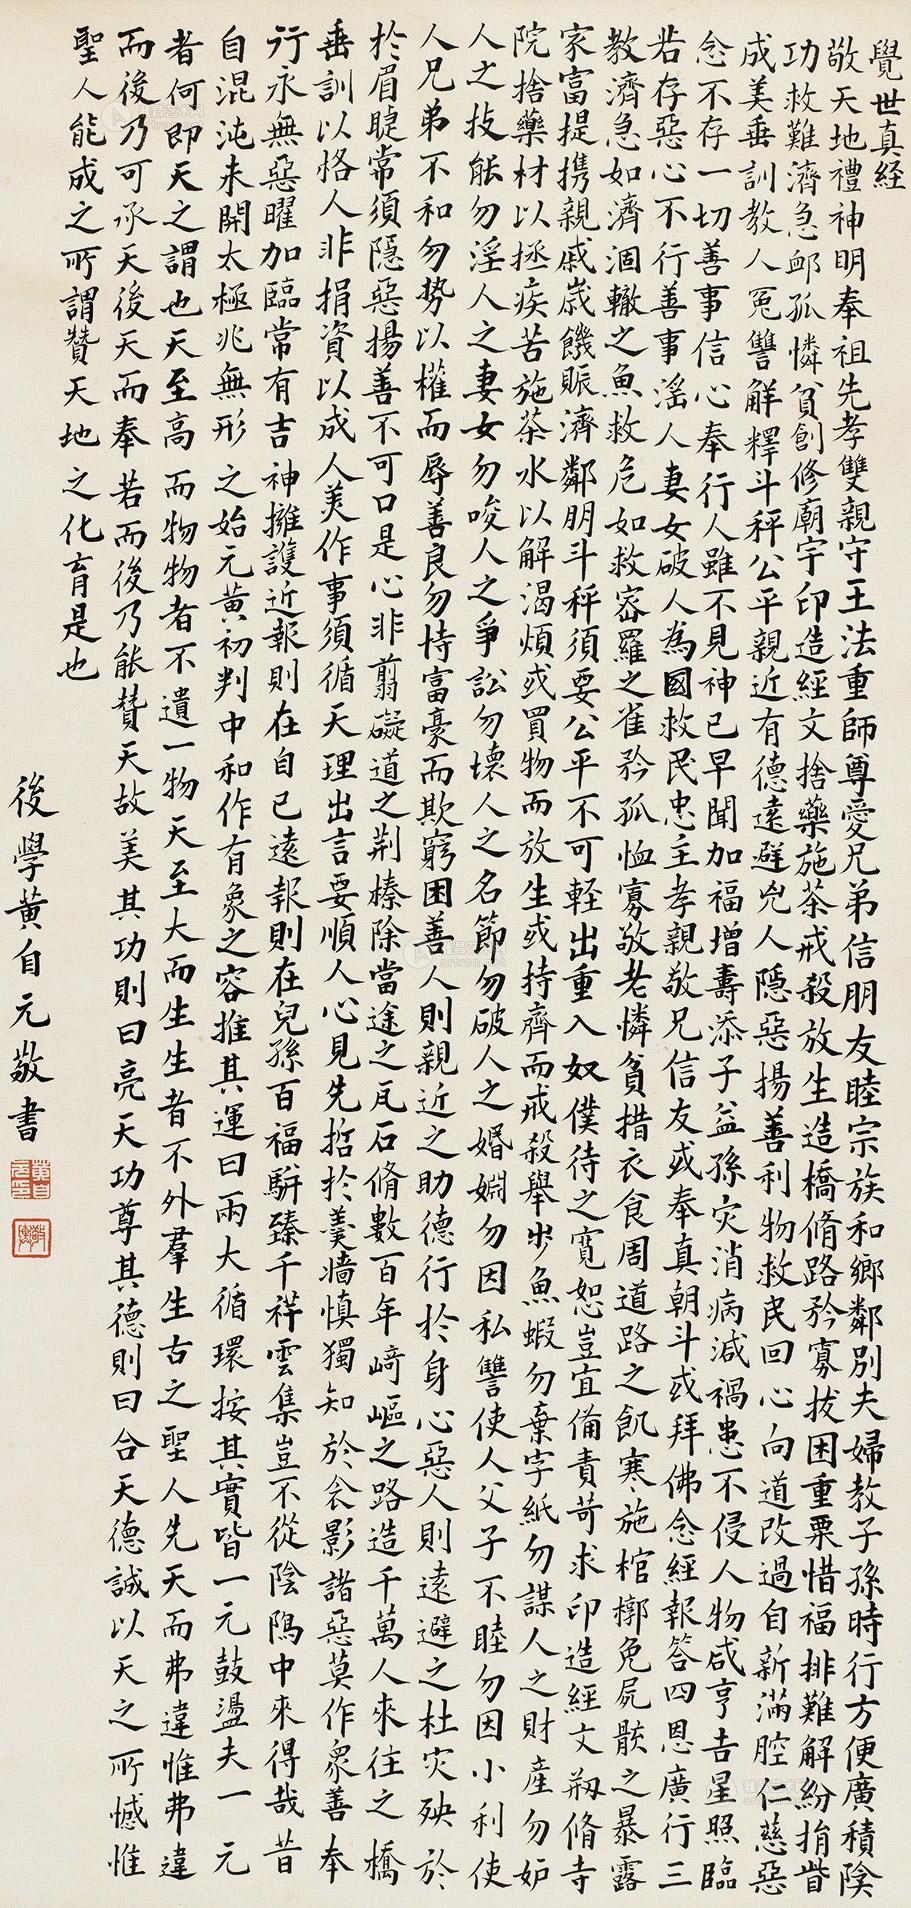 覺世真経
敬天地禮神明奉祖先孝雙親守王法重師尊愛兄弟信朋友睦宗族和鄉鄰別夫婦教子孫時行方便廣積陰
功救難濟急卹孤憐貧創修廟宇印造經文捨藥施茶戒殺放生造橋脩路矜寡拔困重粟惜福排難解紛捐眥
成美垂訓教人冤讐解釋斗秤公平親近有德遠避兇人隱惡揚善利物救民回心向道改過自新滿腔仁慈惡
念不存一切善事信心奉行人雖不見神已早聞加福增壽添子益孫灾消病減禍患不侵人物咸亨吉星照臨
若存惡心不行善事滛人妻女破人為國救民忠主孝親敬兄信友或奉真朝斗或拜佛念經報答四恩廣行三
教濟急如濟涸轍之魚救危如救宻羅之雀矜孤恤寡敬老憐貧措衣食周道路之飢寒施棺槨免屍骸之暴露
家富提携親戚歲饑賑濟鄰朋斗秤須要公平不可軽出重入奴僕待之寬恕豈宜備責苛求印造經文剏脩寺
院捨藥材以拯疾苦施茶水以解渴煩或買物而放生或持齊而戒殺舉步魚蝦勿棄字紙勿謀人之財產勿妒
人之技能勿淫人之妻女勿唆人之爭訟勿壞人之名節勿破人之婚姻勿因私讐使人父子不睦勿因小利使
人兄弟不和勿势以權而辱善良勿恃富豪而欺窮困善人則親近之助德行於身心惡人則遠避之杜灾殃於
於眉睫常須隱惡揚善不可口是心非翦礙道之荆榛除當途之瓦石脩數百年崎嶇之路造千萬人來往之橋
垂訓以格人非捐資以成人美作事須循天理出言要順人心見先哲於羹墻慎獨知於衾影諸惡莫作眾善奉
行永無惡曜加臨常有吉神擁護近報則在自已遠報則在兒孫百福駢臻千祥雲集豈不從陰隲中來得哉昔
自混沌未開太極兆無形之始元黄初判中和作有象之容推其運曰兩大循環按其實皆一元鼓盪夫一元
者何即天之謂也天至高而物物者不遺一物天至大而生生者不外羣生古之聖人先天而弗違惟弗違
而後乃可承天後天而奉若而後乃能贊天故美其功則曰亮天功尊其德則曰合天德誠以天之所憾惟
聖人能成之所謂贊天地之化育是也
後學黄自元敬書